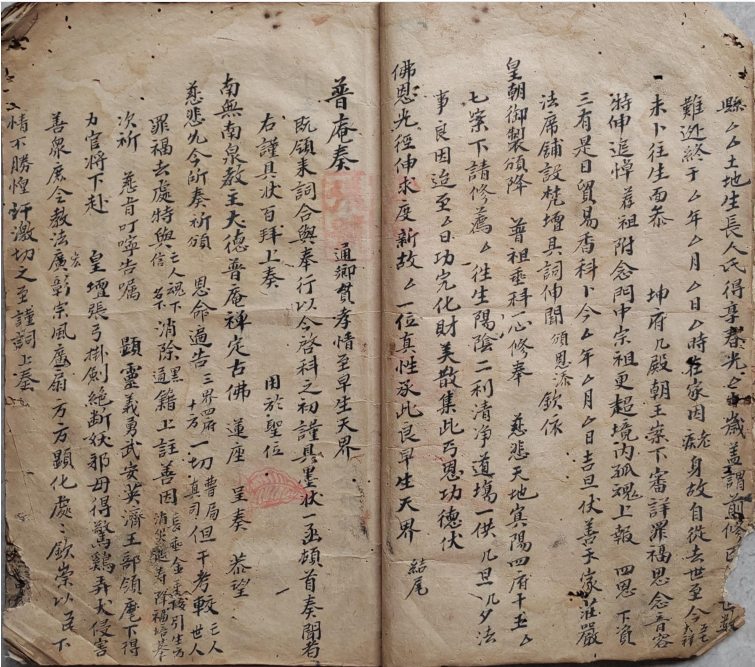 縣厶厶土地生長人氏得享春光厶歲蓋謂前修已
難逃終于厶年厶月厶日厶時在家因病老身故自從去世至今五七大祥
未卜往生面恭 坤府几殿朝王案下審詳罪福思念音容
特伸追悼薦祖附念門中宗祖更超境內孤魂上報 四恩下資
三有是日貿易香科卜今厶年厶月厶日吉旦伏善于家莊嚴
法席鋪設梵壇具詞伸聞頒恩添欽依
皇朝御製頒降 普祖垂科一心修奉 慈悲天地冥陽四府千王厶
七案下請修薦厶往生陽陰二利清净道塲一供几旦几夕法
事良因迨至厶日功完化財美散集此丐恩功德伏
佛恩光徑伸求度新故厶一位真性承此良早生天界 結尾
普庵奏 通鄉貫孝情至早生天界
既領来詞合與奉行以今啓科之初謹具墨状一函頓首奏聞者
右謹具状百拜上奏 用於聖位
南無南泉教王大德普庵禅定古佛 蓮座 呈奏 恭望
慈悲允今所奏祈頒 恩命遍告三界四府十方真司一切曹局但干考較亡人世人
罪福去處特與亡人魂下信名下消除黑通籍上註善因長垂金手接引生方消災延寿降福培基
次祈 慈旨叮嚀告嘱 顕靈義勇武安英濟王部領麾下得
力官將下赴 皇壇張弓掛劍絶断妖邪毋得驚鷄弄犬侵害
善衆庶令教法廣宏彰宗風廣扇方方顕化處〻欽崇以至下
情不勝惶 訐激切之至謹詞上奏